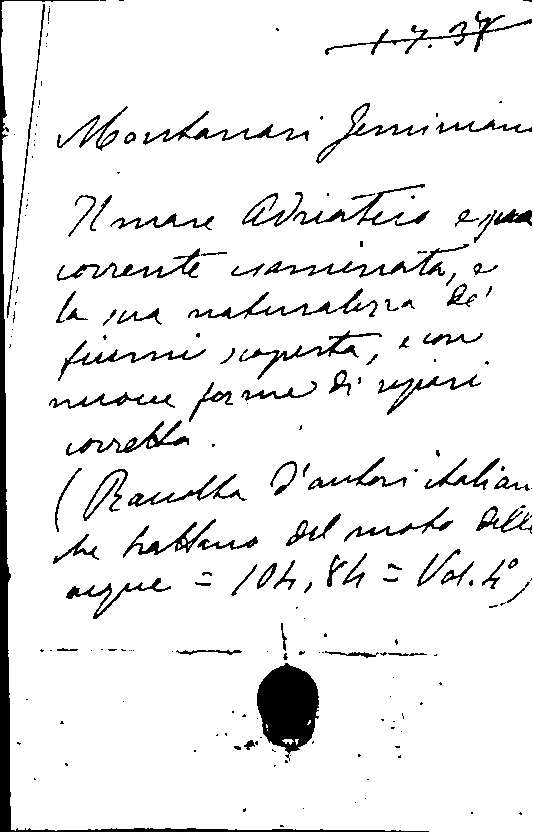 1.7.37
Montanari Geminiano
Il mare Adriatico e sua
corrente esaminata, e
la sua naturalezza de'
fiumi scoperta, e con
nuove forme di ripari
corretta.
(Raccolta d'autori italiani
che trattano del moto delle
acque = 104,84 = Vol. 4°)